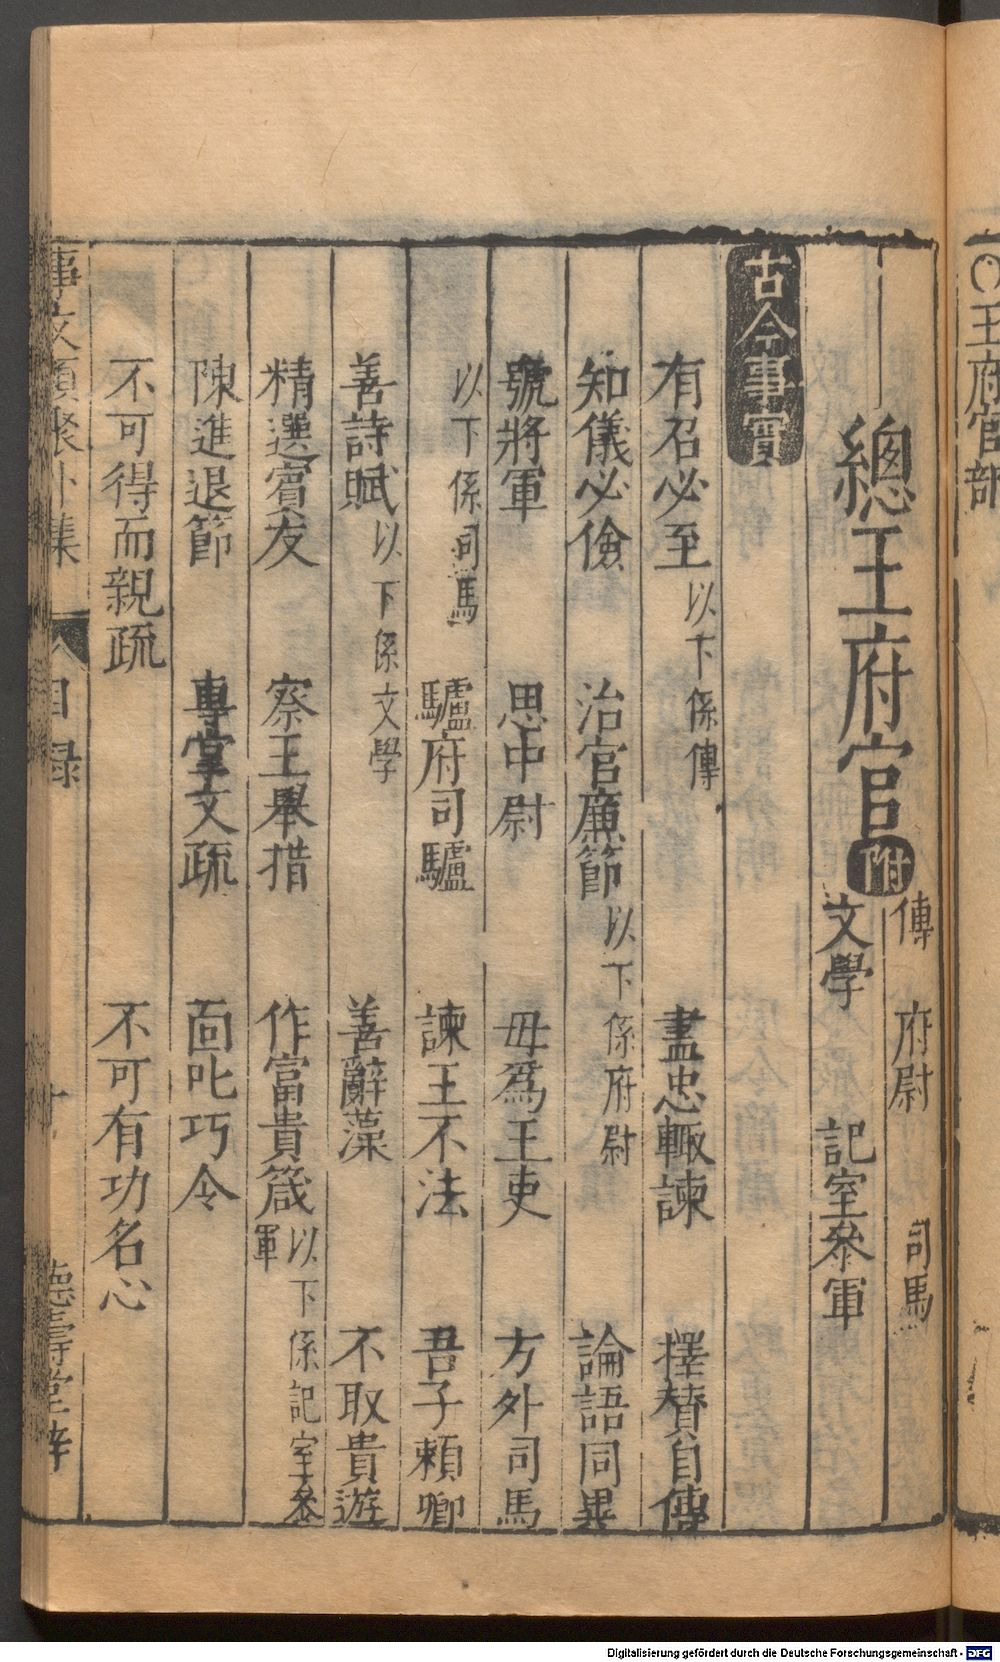 ○王府官部
總王府官附 傳 府尉 司馬
文學 記室參軍
古今事實
有召必至以下係傳 盡忠輙諫 擇賛自傳
知儀必儉 治官廉節以下係府尉 論語同異
號將軍 思中尉 毋爲王吏 方外司馬
以下係司馬 驢府司驢 諫王不法 吾子賴卿
善詩賦以下係文學 善辭藻 不取貴遊
精選賓友 察王舉措 作富貴箴以下係記室參軍
陳進退節 專掌文疏 面叱巧令
不可得而親疏 不可有功名心
事文類聚外集 目録 德壽堂梓
Digitalisierung gefördert durch die Deutsche Forschungsgemeinschaft - DFG